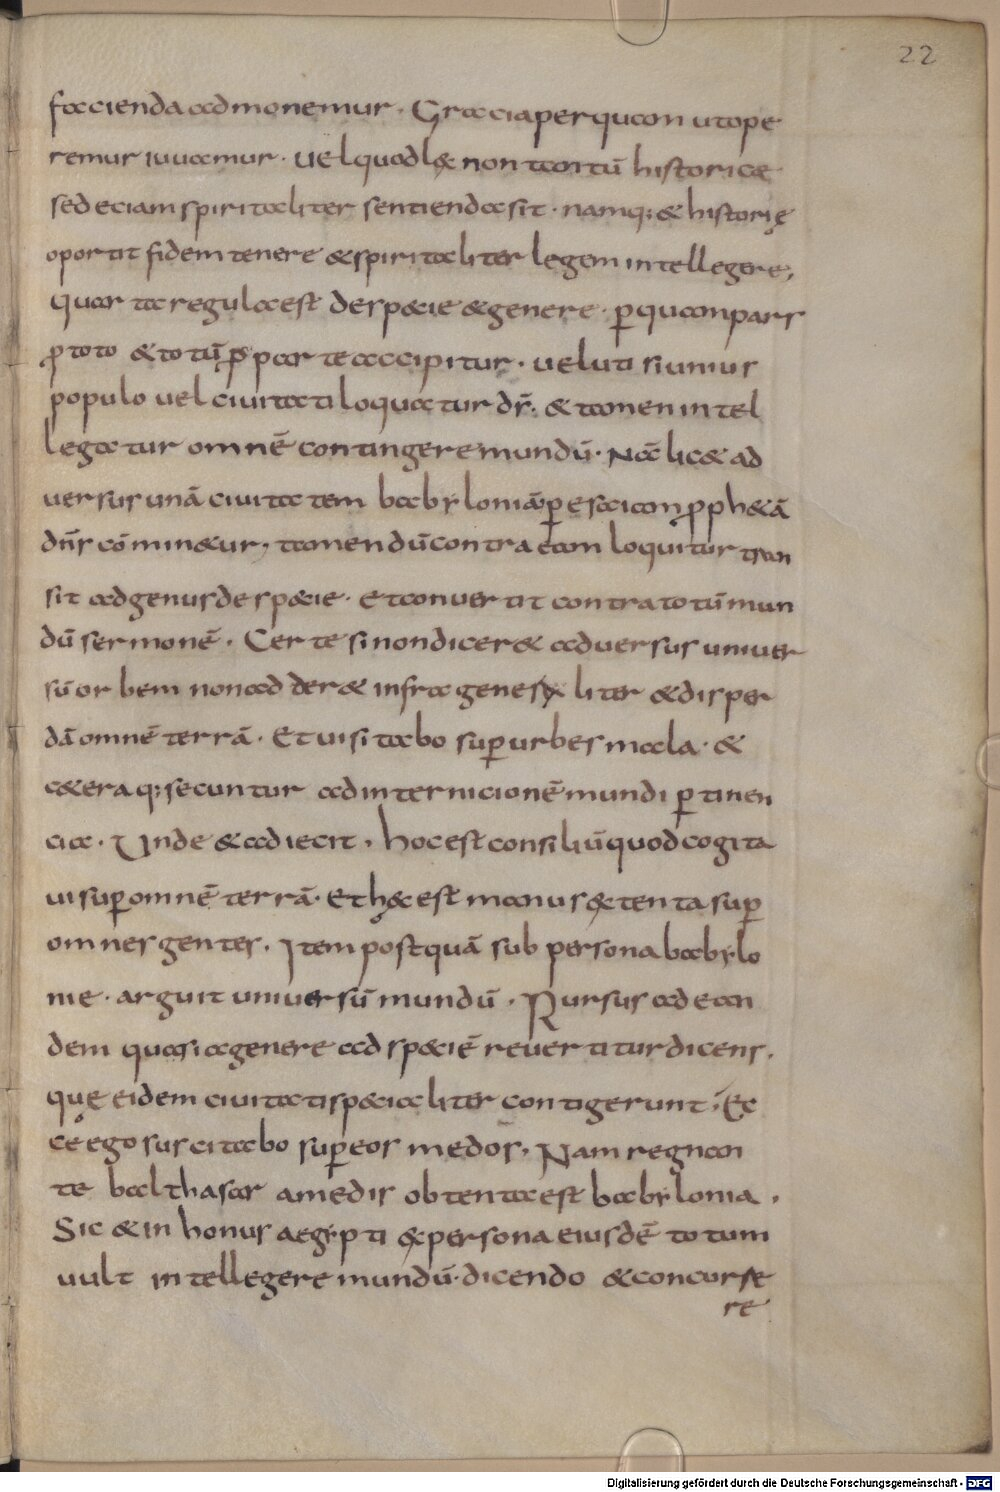 22
facienda admonemur. Gracia per quam ut ope
remur iuuamur. uel quod lex non tantū historicæ
sed eciam spiritaliter sentienda sit. namq; & historię
oportit fidem tenere & spiritaliter legem intellegere,
quarta regula est de specie & genere. p̲ quam pars
ꝓ toto & totū ꝓ parte accipitur. ueluti si unius
populo uel ciuitati loquatur dr̄. & tamen intel
legatur omnē contingere mundū. Nā licet ad
uersus unā ciuitatem babyloniā p̲ esaiam ꝓph&ā
dn̄s cōmin&ur, tamen dū contra eam loquitur tran
sit ad genus de specie. Et conuertit contra totū mun
dū sermonē. Certe si non dicer& aduersus uniuer
sū orbem non adder& infra generaliter & disper
dā omnē terrā. Et uisitabo sup̲ urbes mala. &
c&era q; secuntur ad internicionē mundi p̲tinen
cia. Unde & adiecit. hoc est consiliū quod cogita
ui sup̲ omnē terrā. Et hęc est manus extenta sup̲
omnes gentes. Item postquā sub persona babylo
nie. arguit uniuersū mundū. Rursus ad ean
dem quasi a genere ad speciē reuertitur dicens.
quę eidem ciuitati specialiter contigerunt; Ec
ce ego suscitabo sup̲ eos medos. Nam regnan
te balthasar a medis obtenta est babylonia.
Sic & in honus aegypti ex persona eiusdē totum
uult intellegere mundū. dicendo & concurre
re
Digitalisierung gefördert durch die Deutsche Forschungsgemeinschaft - DFG